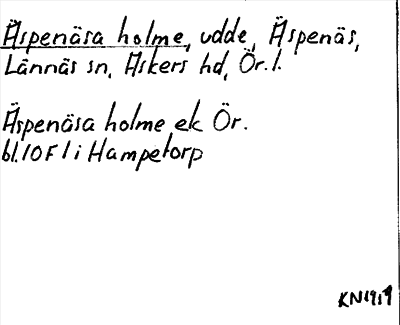 Äspenäsa holme, udde, Äspenäs,
Lännäs sn, Askers hd, Ör. l.
Äspenäsa holme ek Ör.
bl. 10F1i Hampetorp